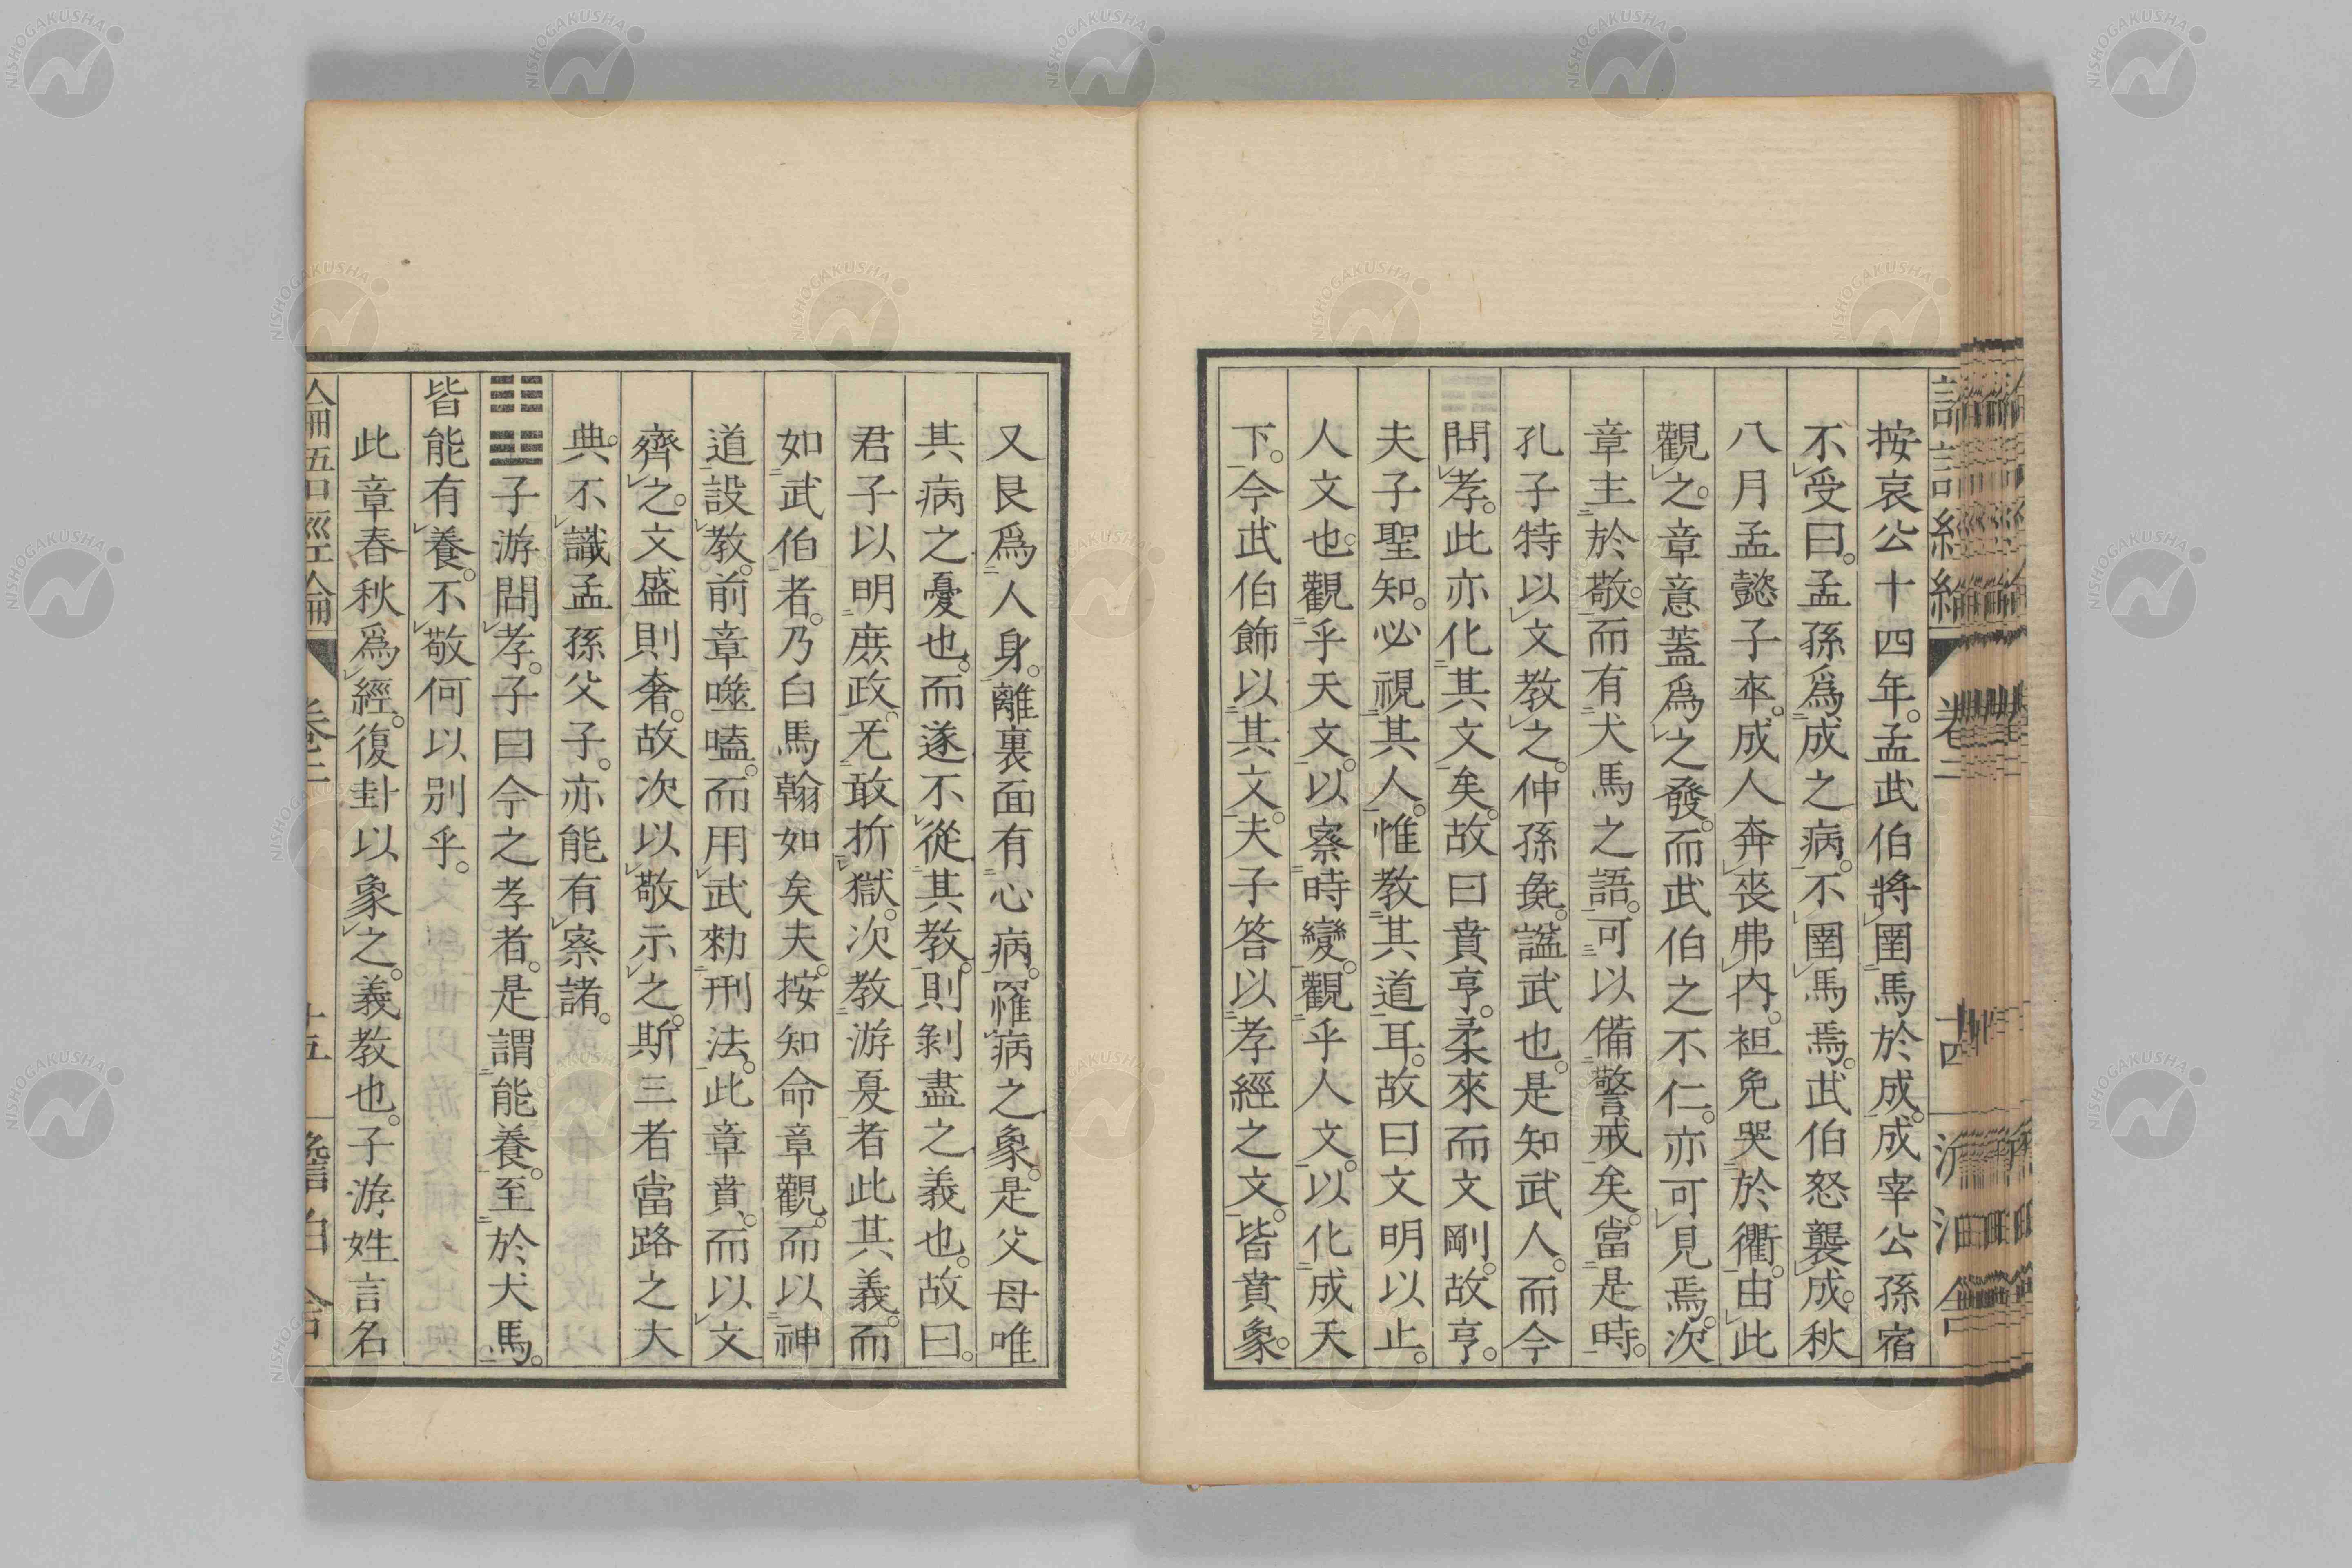 按哀公十四年。孟武伯將圉馬於成。成宰公孫宿
不受曰。孟孫爲成之病。不圉馬焉。武伯怒襲成。秋
八月孟懿子卒。成人奔喪弗内。袒免哭於衢。由此
觀之。章意蓋爲之發。而武伯之不仁。亦可見焉。次
章主於敬。而有犬馬之語。可以備警戒矣。當是時。
孔子特以文教之。仲孫彘。諡武也。是知武人。而今
問孝。此亦化其文矣。故曰賁亨。柔來而文剛。故亨。
夫子聖知。必視其人。惟教其道耳。故曰文明以止。
人文也。觀乎天文。以察時變。觀乎人文。以化成天
下。今武伯飾以其文。夫子答以孝經之文。皆賁象。
又艮爲人身。離裏面有心病。罹病之象。是父母唯
其病之憂也。而遂不從其教。則剝盡之義也。故曰。
君子以明庶政。无敢折獄。次教游夏者此其義。而
如武伯者。乃白馬翰如矣夫。按知命章觀。而以神
道設教。前章噬嗑。而用武勑刑法。此章賁。而以文
齊之。文盛則奢。故次以敬示之。斯三者當路之大
典。不識孟孫父子。亦能有察諸。
䷗子游問孝。子曰今之孝者。是謂能養。至於犬馬。
皆能有養。不敬何以別乎。
此章春秋爲經。復卦以象之。義教也。子游姓言名
論語經綸 卷二 十五